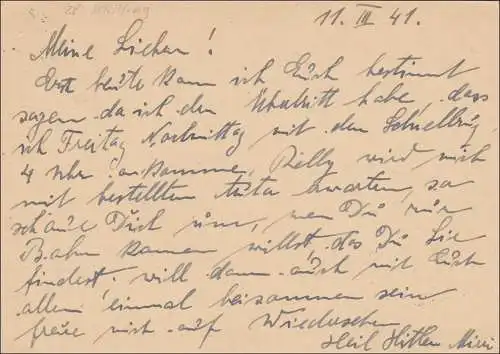 11. III 41.
Meine Lieben!
Erst heute kann ich Euch bestimmt
sagen da ich den habe, dass
ich Freitag Nachmittag mit dem Schnellzug
4 Uhr ankomme, wird mich
mit bestellten Auto erwarten, so
schaue Dich um, wen Du zur
Bahn kommen willst, das Du Sie
findest. will dann auch mit Euch
allen einmal beisammen sein
freue mich auf Wiedersehen
Heil Hitler